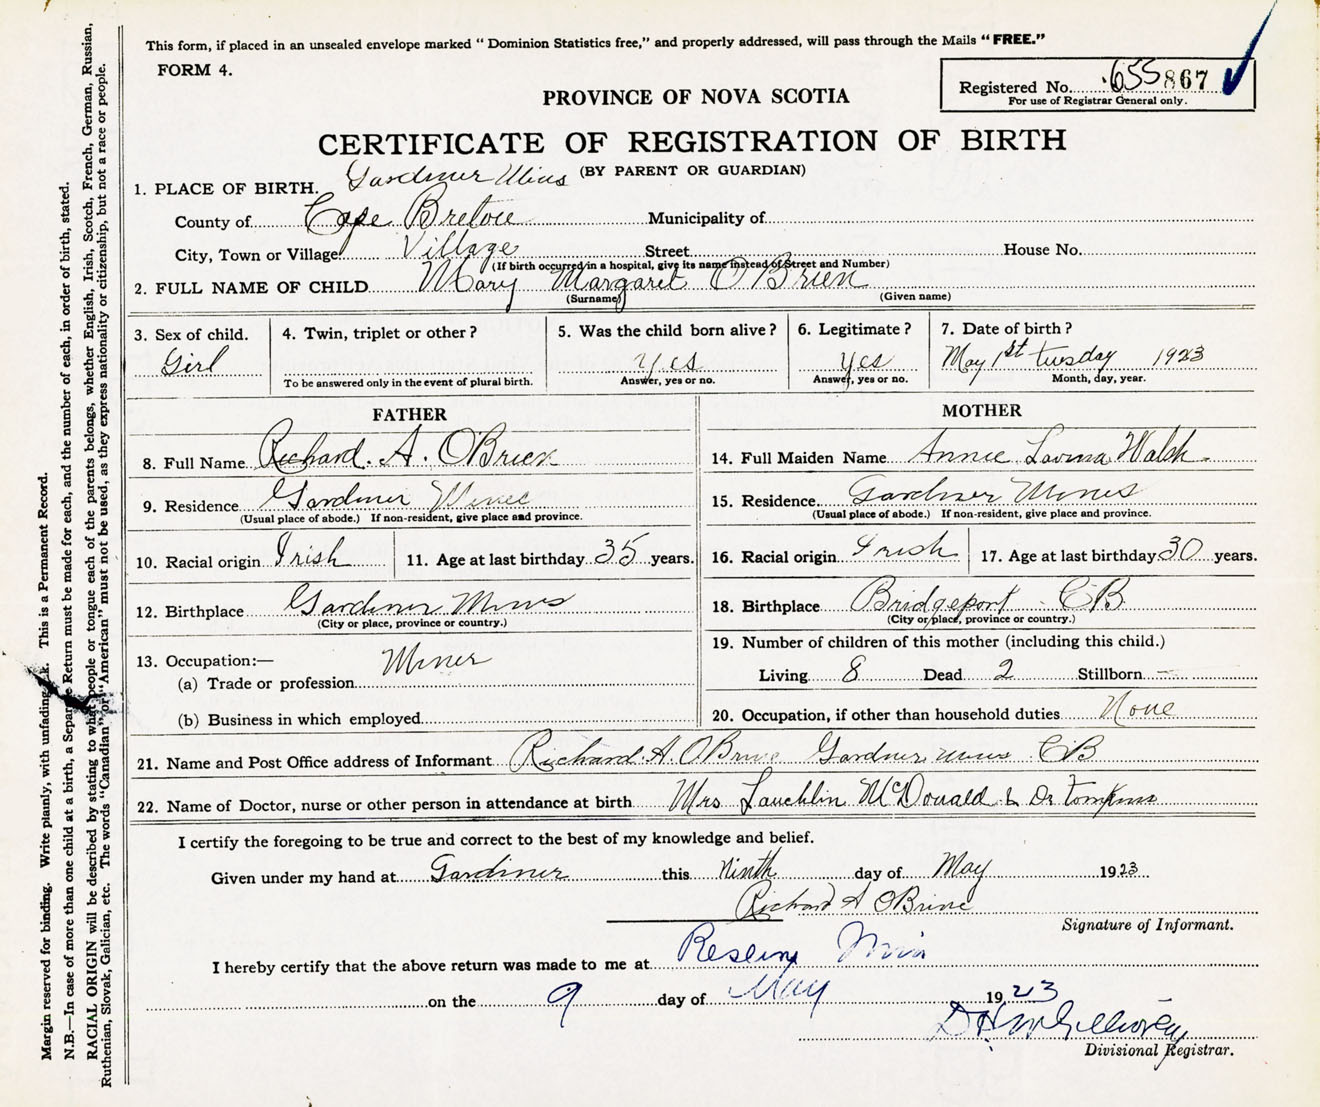 This form, if placed in an unsealed envelope marked “ Dominion Statistics free,” and properly addressed, will pass through the Mails “ FREE.”
FORM 4.
Registered No. 655867
For use of Registrar General only.
PROVINCE OF NOVA SCOTIA
CERTIFICATE OF REGISTRATION OF BIRTH
(BY PARENT OR GUARDIAN)
1. PLACE OF BIRTH. Gardiner Mines
County of Cape Breton Municipality of
City, Town or Village Village Street House No.
(If birth occurred in a hospital, give its name instead of Street and Number)
2. FULL NAME OF CHILD Mary Margaret O'Brien
(Surname) (Given name)
3. Sex of child. 4. Twin, triplet or other ? 5. Was the child born alive ? 6. Legitimate ? 7. Date of birth ?
Girl yes yes May 1st tusday 1923
To be answered only in the event of plural birth. Answer, yes or no. Answer, yes or no. Month, day, year.
FATHER
8. Full Name Richard. A. OBrien
9. Residence Gardiner Mines
(Usual place of abode.) If non-resident, give place and province.
10. Racial origin Irish 11. Age at last birthday 35 years.
12. Birthplace Gardiner Mines
(City or place, province or country.)
13. Occupation:— Miner
(a) Trade or profession
(b) Business in which employed
MOTHER
14. Full Maiden Name Annie Lavina Walsh
15. Residence Gardiner Mines
(Usual place of abode.) If non-resident, give place and province.
16. Racial origin Irish 17. Age at last birthday 30 years.
18. Birthplace Bridgeport CB
(City or place, province or country.)
19. Number of children of this mother (including this child.)
Living 8 Dead 2 Stillborn —
20. Occupation, if other than household duties None
21. Name and Post Office address of Informant Richard. A. OBrine Gardner mines CB
22. Name of Doctor, nurse or other person in attendance at birth Mrs Lauchlin McDonald & Dr Tompkins
I certify the foregoing to be true and correct to the best of my knowledge and belief.
Given under my hand at Gardiner this Ninth day of May 1923
Richard A OBrine
Signature of Informant.
I hereby certify that the above return was made to me at
on the 9 day of May 1923
Divisional Registrar.
Margin reserved for binding. Write plainly, with unfading. This is a Permanent Record.
N.B.—In case of more than one child at a birth, a Separate Return must be made for each, and the number of each, in order of birth, stated.
RACIAL ORIGIN will be described by stating to what people or tongue each of the parents belongs, whether English, Irish, Scotch, French, German, Russian,
Ruthenian, Slovak, Galician, etc. The words “Canadian” or “American” must not be used, as they express nationality or citizenship, but not a race or people.